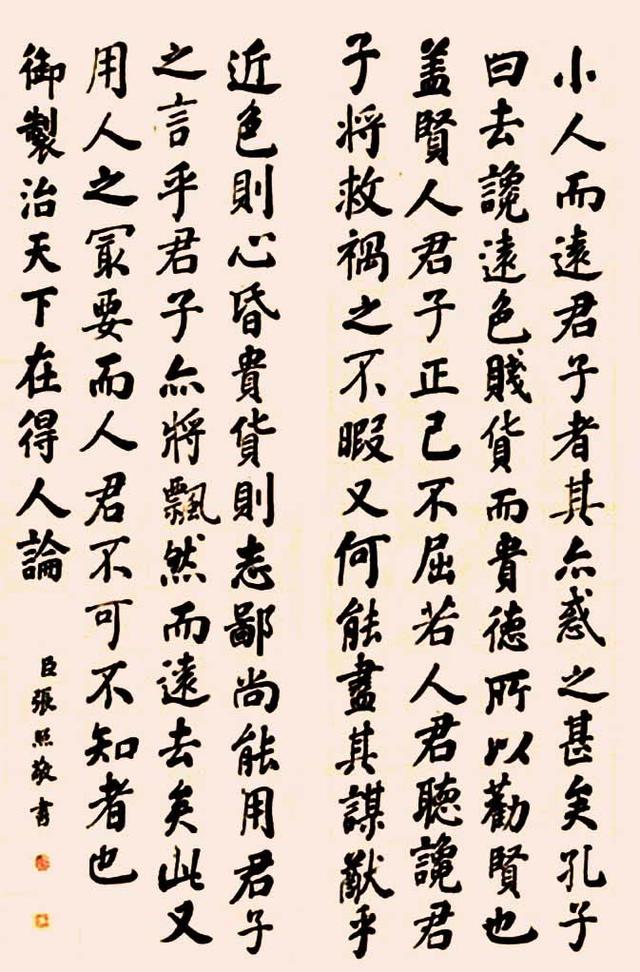 小人而遠君子者其亦惑之甚矣孔子
曰去讒遠色賤貨而貴德所以勸賢也
盖賢人君子正己不屈若人君聽讒君
子将救禍之不暇又何能盡其謀猷乎
近色則心昏貴貨則志鄙尚能用君子
之言乎君子亦將飄然而遠去矣此又
用人之冣要而人君不可不知者也
御製治天下在得人論
臣張照敬書